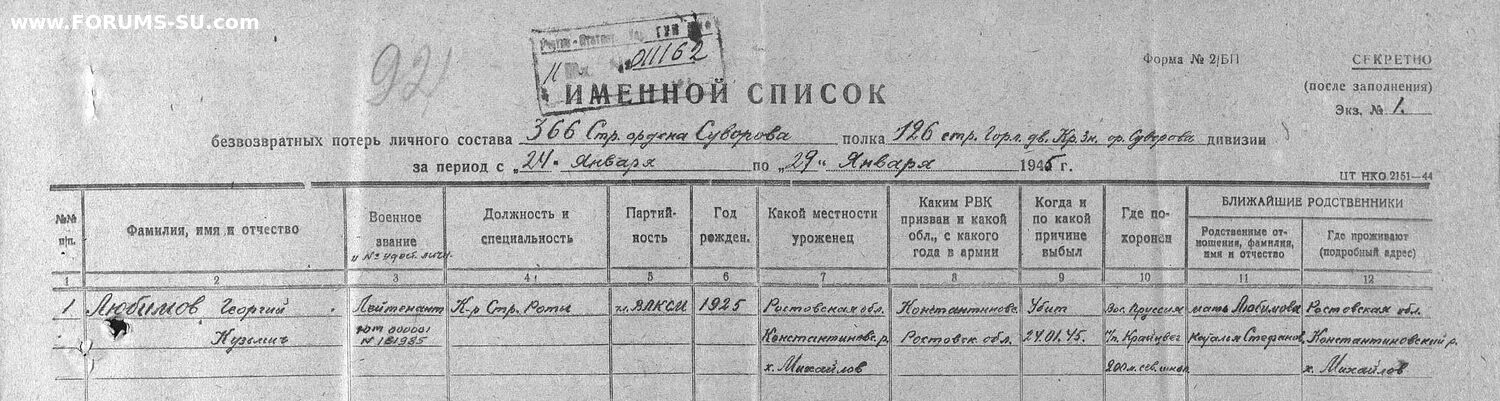 www.FORUMS-SU.com
92
011162
Форма № 2/БП
СЕКРЕТНО
(после заполнения)
Экз. № 1.
ИМЕННОЙ СПИСОК
безвозвратных потерь личного состава 366 Стр. ордена Суворова полка 126 стр. Горл. дв. Кр. Зн. ор. Суворова дивизии
за период с „24" Января по „29" Января 1945 г.
ЦТ НКО 2151—44
№№ п/п.
Фамилия, имя и отчество
Военное звание и № удост. личн.
Должность и специальность
Партийность
Год рожден.
Какой местности уроженец
Каким РВК призван и какой обл., с какого года в армии
Когда и по какой причине выбыл
Где похоронен
БЛИЖАЙШИЕ РОДСТВЕННИКИ
Родственные отношения, фамилия, имя и отчество
Где проживают (подробный адрес)
1 2 3 4 5 6 7 8 9 10 11 12
1 Любимов Георгий Лейтенант К-р Стр. Роты чл. ВЛКСМ 1925 Ростовская обл. Константиновс. Убит Вос. Пруссия мать Любимова Ростовская обл.
Кузьмич 000001 Константиновс. р. Ростовск. обл. 24.01.45. Крайцвег Наталья Стефанов. Константиновский р.
N 181985
х. Михайлов 200 м. сев. х. Михайлов